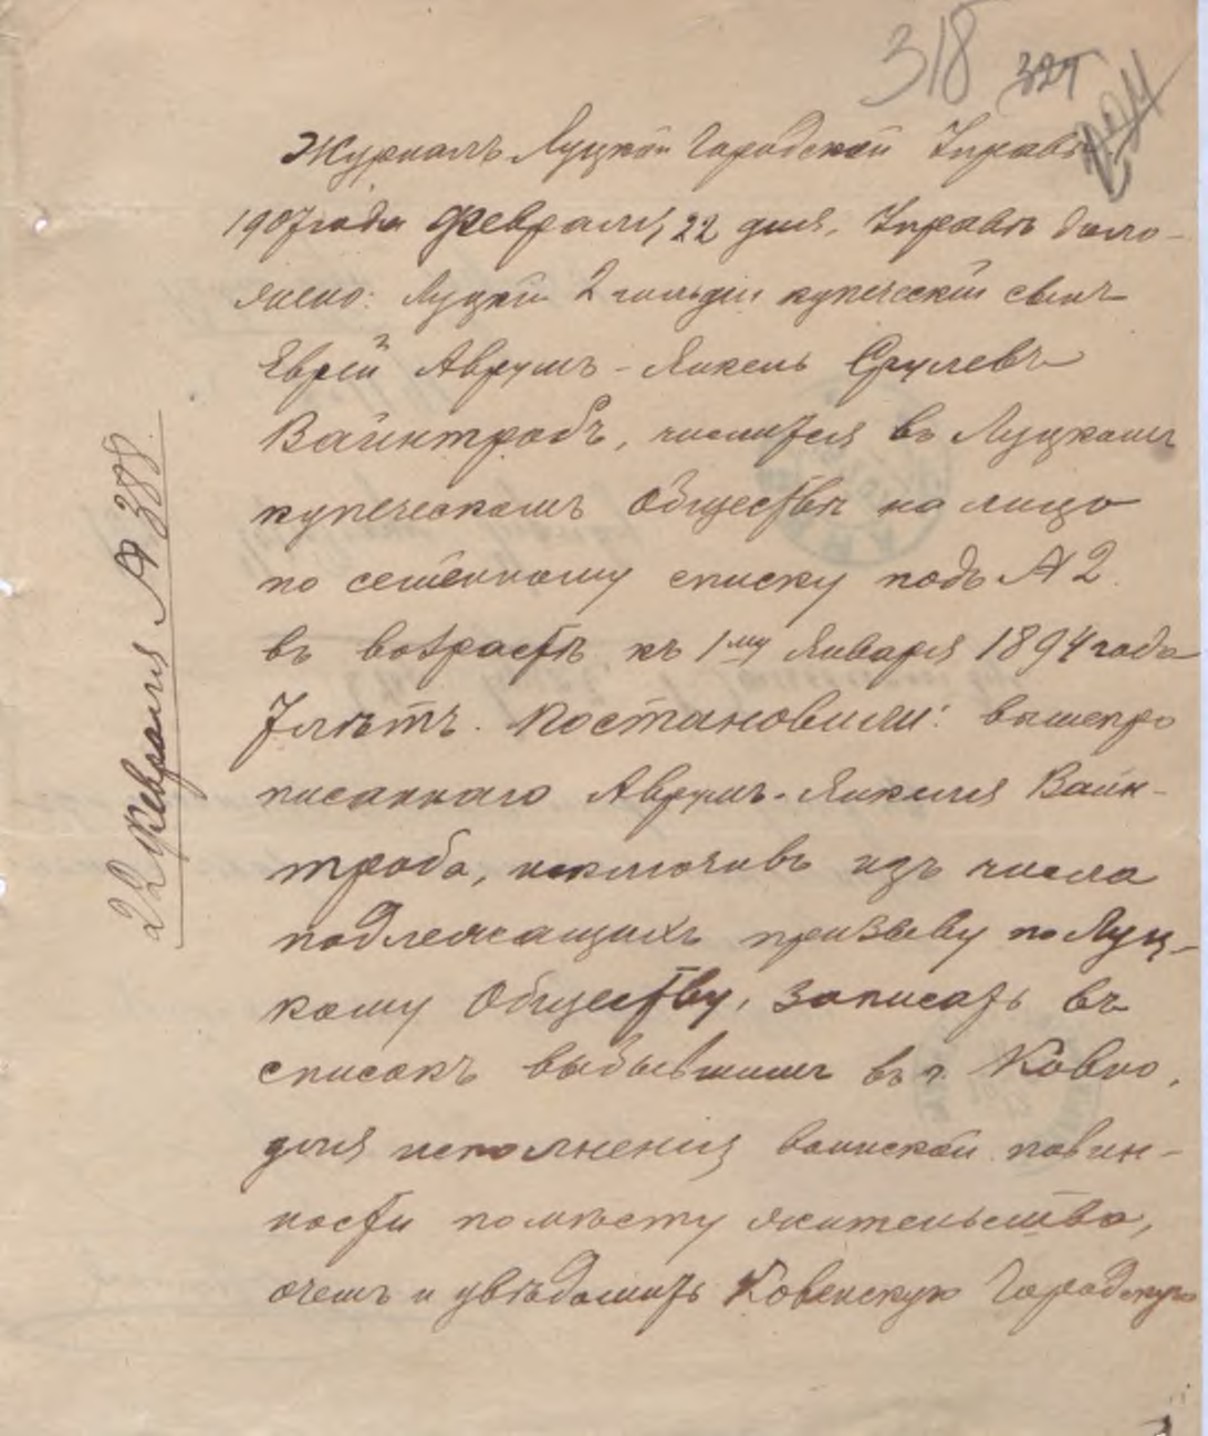 318 324
Журналъ Луцкой Городской Управы
1907 года Февраля 22 дня. Управѣ доло-
жено: Луцкій 2 гильдіи купеческій сынъ
Еврей Аврумъ-Янкель Срулевъ
Вайнтробъ, числится въ Луцкомъ
купеческомъ Обществѣ на лицо
по семейному списку подъ № 2.
въ возрастѣ къ 1му Января 1894 года
7 лѣтъ. Постановили: вышепро
писаннаго Аврумъ-Янкеля Вайн-
троба, исключивъ изъ числа
подлежащихъ призыву по Луц-
кому Обществу, записать въ
списокъ выбывшимъ въ г. Ковно,
для исполненія воинской повин-
ности по мѣсту жительства,
о чемъ и увѣдомить Ковенскую Городскую
22 Февраля № 388.